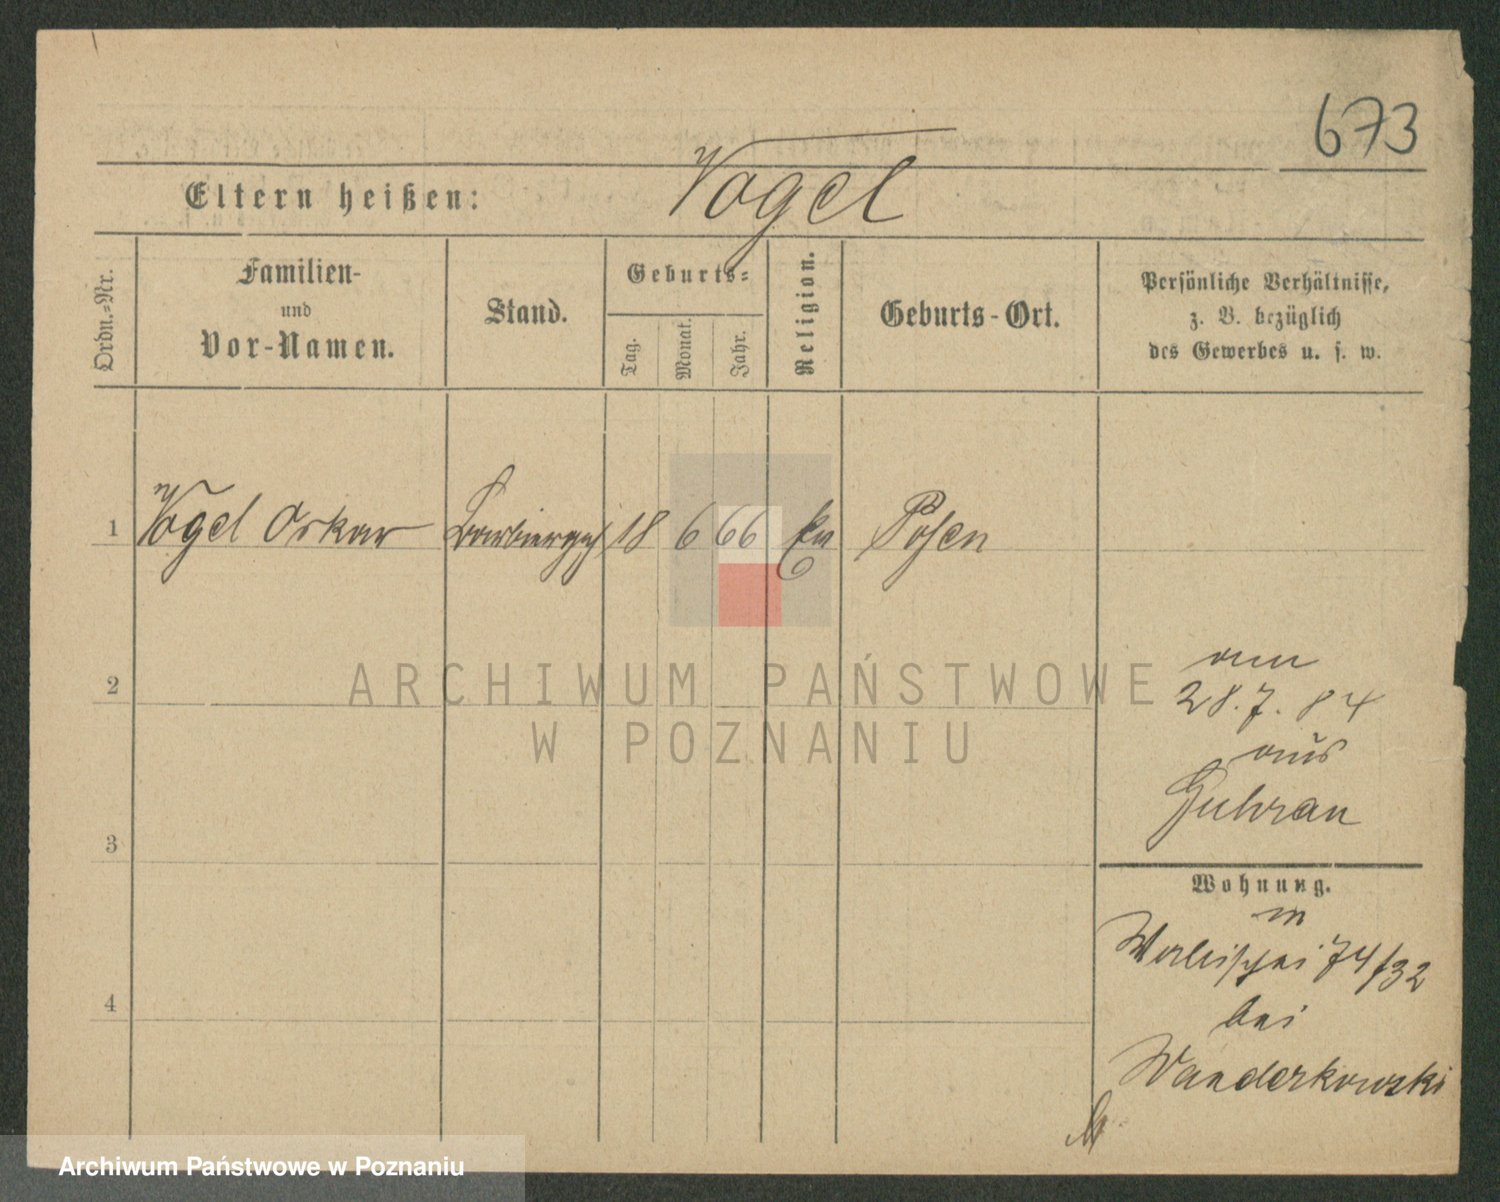 673
Eltern heißen: Vogel
Ordn.=Nr.
Familien-
und
Vor-Namen.
Stand.
Geburts=
Tag.
Monat.
Jahr.
Religion.
Geburts-Ort.
Persönliche Verhältnisse,
z. B. bezüglich
des Gewerbes u. s. w.
1 Vogel Oskar Barbiergeh 18 6 66 Ev Posen
2
3
4
am
28.7.84
aus
Guhrau
Wohnung.
in
Wallischei 74/32
bei
Wanderkowski
ARCHIWUM PAŃSTWOWE
W POZNANIU
Archiwum Państwowe w Poznaniu